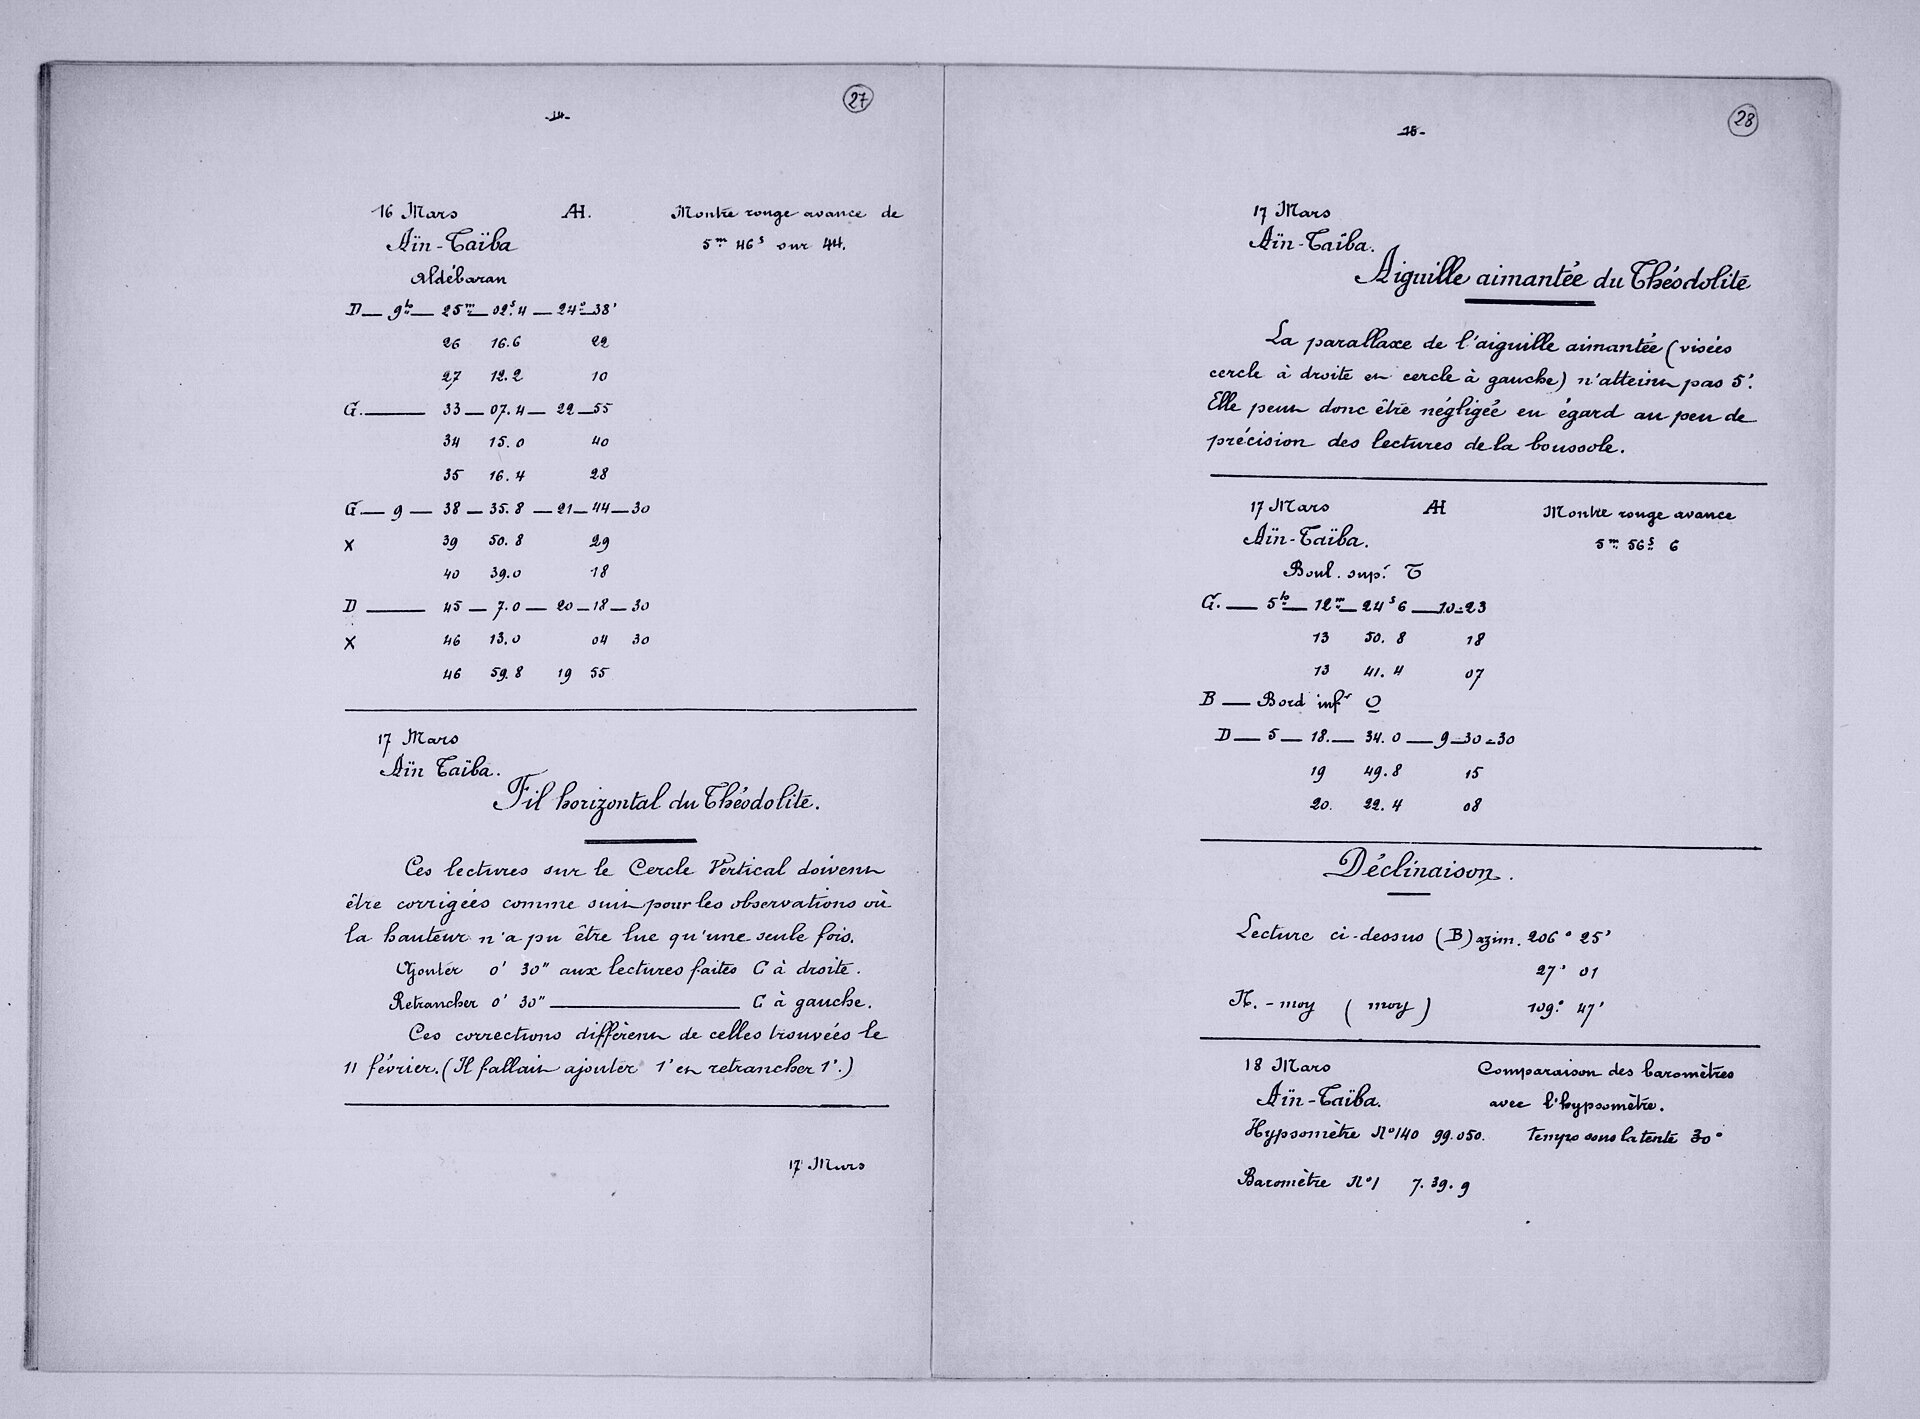 -14-
27
16 Mars AH. Montre rouge avance de
Aïn-Taïba 5m 46s sur 44.
Aldébaran
D — 9h — 25m — 02s.4 — 24° — 38'
26 16.6 22
27 12.2 10
G. — 33 — 07.4 — 22 — 55
34 15.0 40
35 16.4 28
G — 9 — 38 — 35.8 — 21 — 44 — 30
X 39 50.8 29
40 39.0 18
D — 45 — 7.0 — 20 — 18 — 30
X 46 13.0 04 30
46 59.8 19 55
17 Mars
Aïn Taïba.
Fil horizontal du Théodolite.
Ces lectures sur le Cercle Vertical doivent
être corrigées comme suit pour les observations où
la hauteur n'a pu être lue qu'une seule fois.
Ajouter 0' 30" aux lectures faites C à droite.
Retrancher 0' 30" ——— C à gauche.
Ces corrections diffèrent de celles trouvées le
11 février. (Il fallait ajouter 1' et retrancher 1'.)
17 Mars
-15-
28
17 Mars
Aïn-Taïba.
Aiguille aimantée du Théodolite
La parallaxe de l'aiguille aimantée (visées
cercle à droite et cercle à gauche) n'atteint pas 5'.
Elle peut donc être négligée eu égard au peu de
précision des lectures de la boussole.
17 Mars AH Montre rouge avance
Aïn-Taïba. 5m 56s 6
Boul. supr
G. — 5h — 12m — 24s 6 — 10 — 23
13 50.8 18
13 41.4 07
B — Bord infr O
D — 5 — 18. — 34.0 — 9 — 30 — 30
19 49.8 15
20. 22.4 08
Déclinaison.
Lecture ci-dessus (B) azim. 206° 25'
27' 01
N. - moy (moy) 109° 47'
18 Mars Comparaison des baromètres
Aïn-Taïba. avec l'hypsomètre.
Hypsomètre No 140 99.050. Temps sous la tente 30°
Baromètre No 1 7.39.9